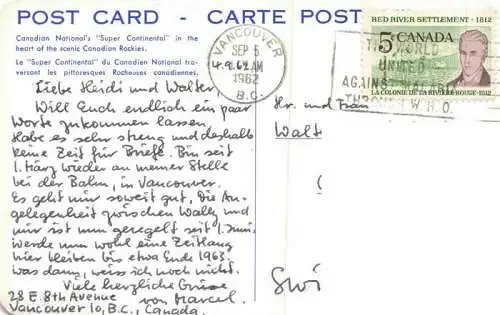 POST CARD - CARTE POST
Canadian National's "Super Continental" in the
heart of the scenic Canadian Rockies.
Le "Super Continental" du Canadian National tra-
versant les pittoresques Rocheuses canadiennes.
VANCOUVER
SEP 5
AM
1962
B.C.
THE WORLD
UNITED
AGAINST MALARIA
THROUGH W.H.O.
RED RIVER SETTLEMENT · 1812
5 CANADA
LA COLONIE DE LA RIVIÈRE ROUGE · 1812
4.9.62
Liebe Heidi und Walter,
Will Euch endlich ein paar
Worte zukommen lassen.
Habe es sehr streng und deshalb
keine Zeit für Briefe. Bin seit
1. März wieder an meiner Stelle
bei der Bahn, in Vancouver.
Es geht mir soweit gut. Die An-
gelegenheit zwischen Wally und
mir ist nun geregelt seit 1. Juni.
Werde nun wohl eine Zeitlang
hier bleiben bis etwa Ende 1963.
Was dann, weiss ich noch nicht.
Viele herzliche Grüsse
von Marcel.
28 E 8th Avenue
Vancouver 10, B.C., Canada.
Hr. und Frau
Walt
Swi